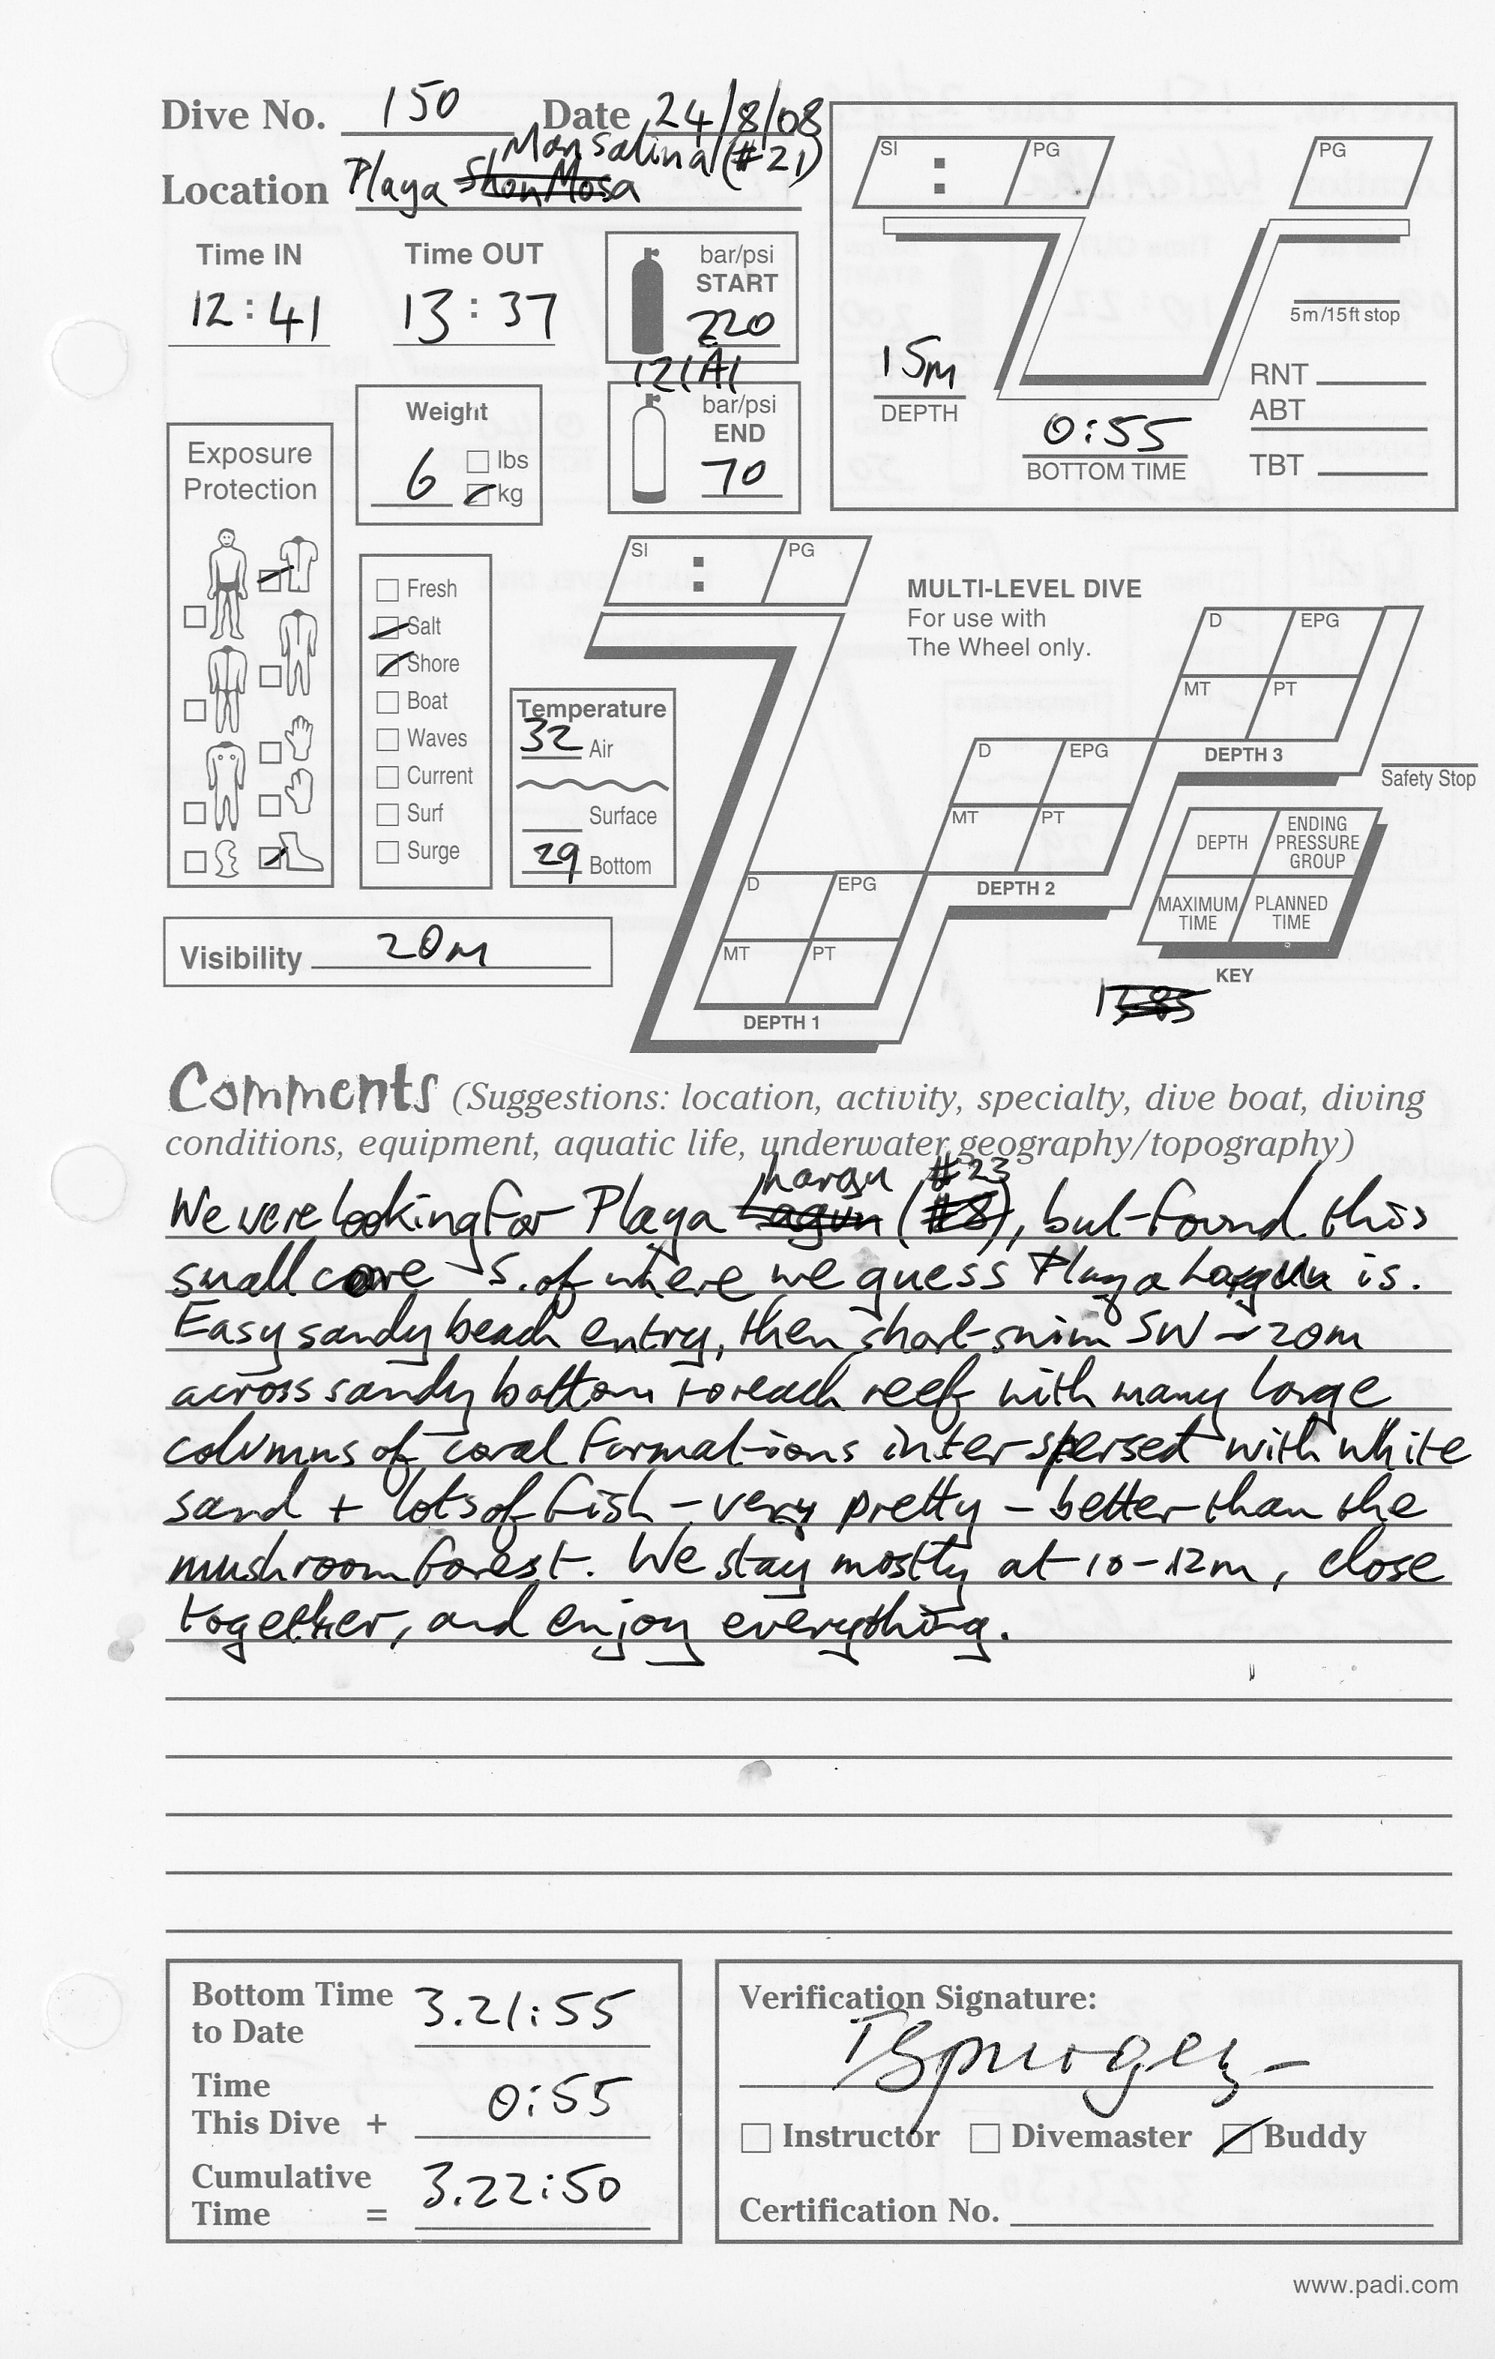 Dive No. 150 Date 24/8/08
Mansalina (#21)
Location Playa Shon Mosa
SI : PG PG
Time IN Time OUT
12:41 13:37
bar/psi
START
220
12l Al
bar/psi
END
70
5m/15ft stop
15m
DEPTH
0:55
BOTTOM TIME
RNT
ABT
TBT
Weight
6 lbs
kg
Exposure
Protection
Fresh
Salt
Shore
Boat
Waves
Current
Surf
Surge
Temperature
32 Air
Surface
29 Bottom
Visibility 20m
SI : PG
MULTI-LEVEL DIVE
For use with
The Wheel only.
D EPG
MT PT
DEPTH 3
Safety Stop
D EPG
MT PT
DEPTH 2
D EPG
MT PT
DEPTH 1
DEPTH ENDING PRESSURE GROUP
MAXIMUM TIME PLANNED TIME
KEY
Comments (Suggestions: location, activity, specialty, dive boat, diving
conditions, equipment, aquatic life, underwater geography/topography)
Hargu #23
We were looking for Playa Lagun (#8), but found this
small cove S. of where we guess Playa Hargu is.
Easy sandy beach entry, then short swim SW ~20m
across sandy bottom to reach reef with many large
columns of coral formations interspersed with white
sand + lots of fish - very pretty - better than the
mushroom forest. We stay mostly at 10-12m, close
together, and enjoy everything.
Bottom Time
to Date 3.21:55
Time
This Dive + 0:55
Cumulative
Time = 3.22:50
Verification Signature:
Instructor Divemaster Buddy
Certification No.
www.padi.com